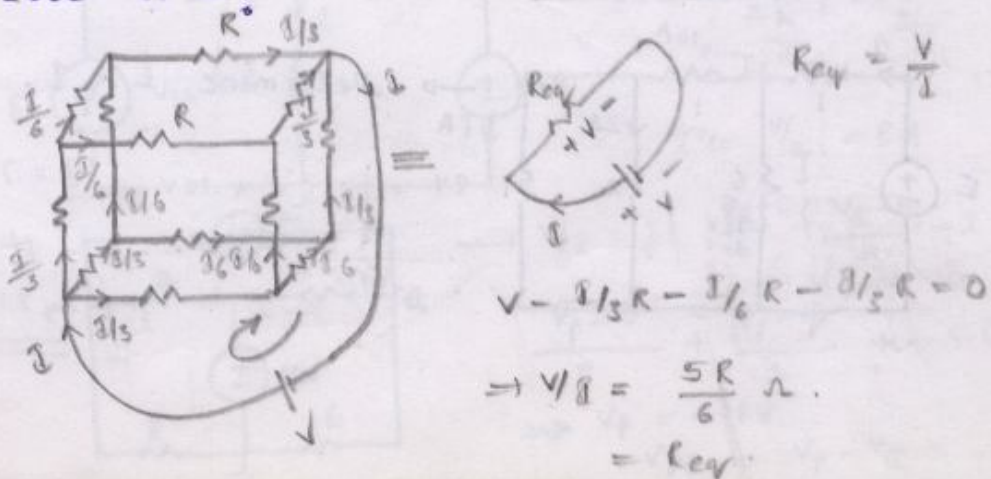 R I/3
I
I/6
I/3
R
I/6
I/6
I/3
I/3
I/3
I/6 I/6 I/6
I/3
I
V
≡
Req
+ V -
+ V -
I
Req = V/I
V - I/3 R - I/6 R - I/3 R = 0
⇒ V/I = 5R/6 Ω.
= Req.